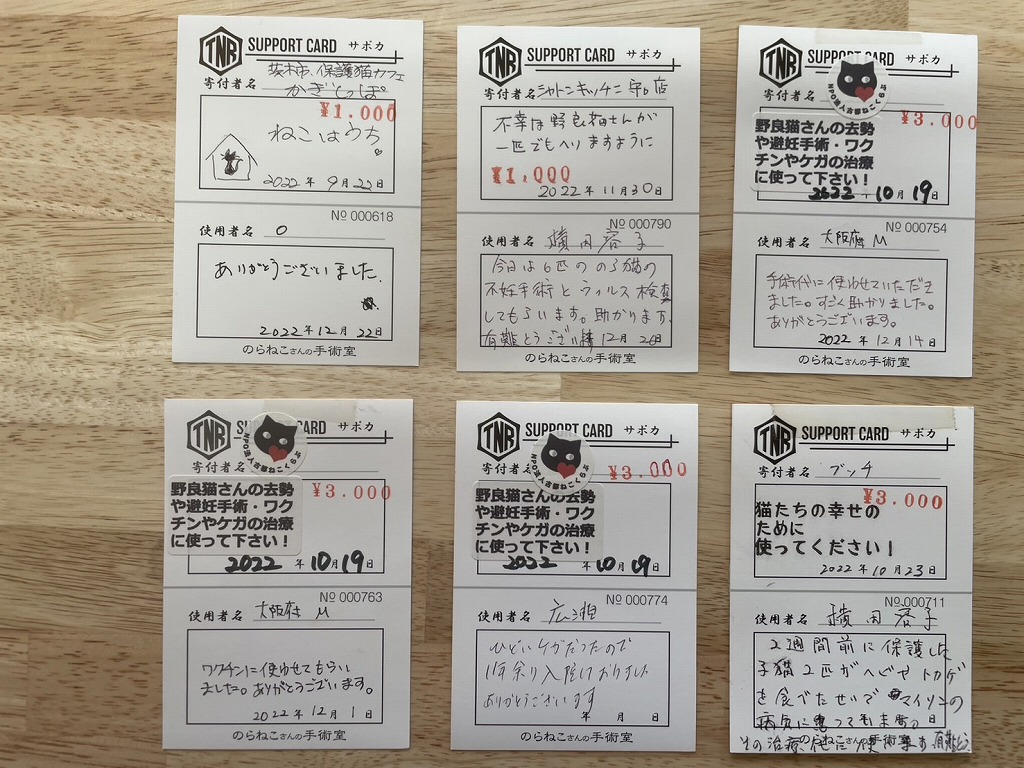 TNR SUPPORT CARD サポカ
茨木市、保護猫カフェ
寄付者名 かぎしっぽ
¥1.000
ねこはうち
2022年 9月22日
№ 000618
使用者名 O
ありがとうございました。
2022年12月22日
のらねこさんの手術室
TNR SUPPORT CARD サポカ
寄付者名 シャトンキッチン 守口店
不幸な野良猫さんが
一匹でもへりますように
¥1,000
2022年11月30日
№ 000790
使用者名 横田容子
今日は6匹ののら猫の
不妊手術とウィルス検査
してもらいます。助かります。
有難とうござい 12月26日
のらねこさんの手術室
TNR SUPPORT CARD サポカ
寄付者名
NPO法人古都ねこくらぶ
¥3.000
野良猫さんの去勢
や避妊手術・ワク
チンやケガの治療
に使って下さい!
2022年10月19日
№ 000754
使用者名 大阪府 M
手術代に使わせていただき
ました。すごく助かりました。
ありがとうございます。
2022年12月14日
のらねこさんの手術室
TNR SUPPORT CARD サポカ
寄付者名
NPO法人古都ねこくらぶ
¥3.000
野良猫さんの去勢
や避妊手術・ワク
チンやケガの治療
に使って下さい!
2022年10月19日
№ 000763
使用者名 大阪府 M
ワクチンに使わせてもらい
ました。ありがとうございます。
2022年12月1日
のらねこさんの手術室
TNR SUPPORT CARD サポカ
寄付者名
NPO法人古都ねこくらぶ
¥3.000
野良猫さんの去勢
や避妊手術・ワク
チンやケガの治療
に使って下さい!
2022年10月19日
№ 000774
使用者名 広瀬
ひどいケガだったので
余り入院しておりました
ありがとうございます
年 月 日
のらねこさんの手術室
TNR SUPPORT CARD サポカ
寄付者名 ブンチ
¥3.000
猫たちの幸せの
ために
使ってください!
2022年10月23日
№ 000711
使用者名 横田容子
2週間前に保護した
子猫2匹がヘビやトカゲ
を食べたせいでマイソンの
病気に
その治療 に使 ます 有難とう
のらねこさんの手術室